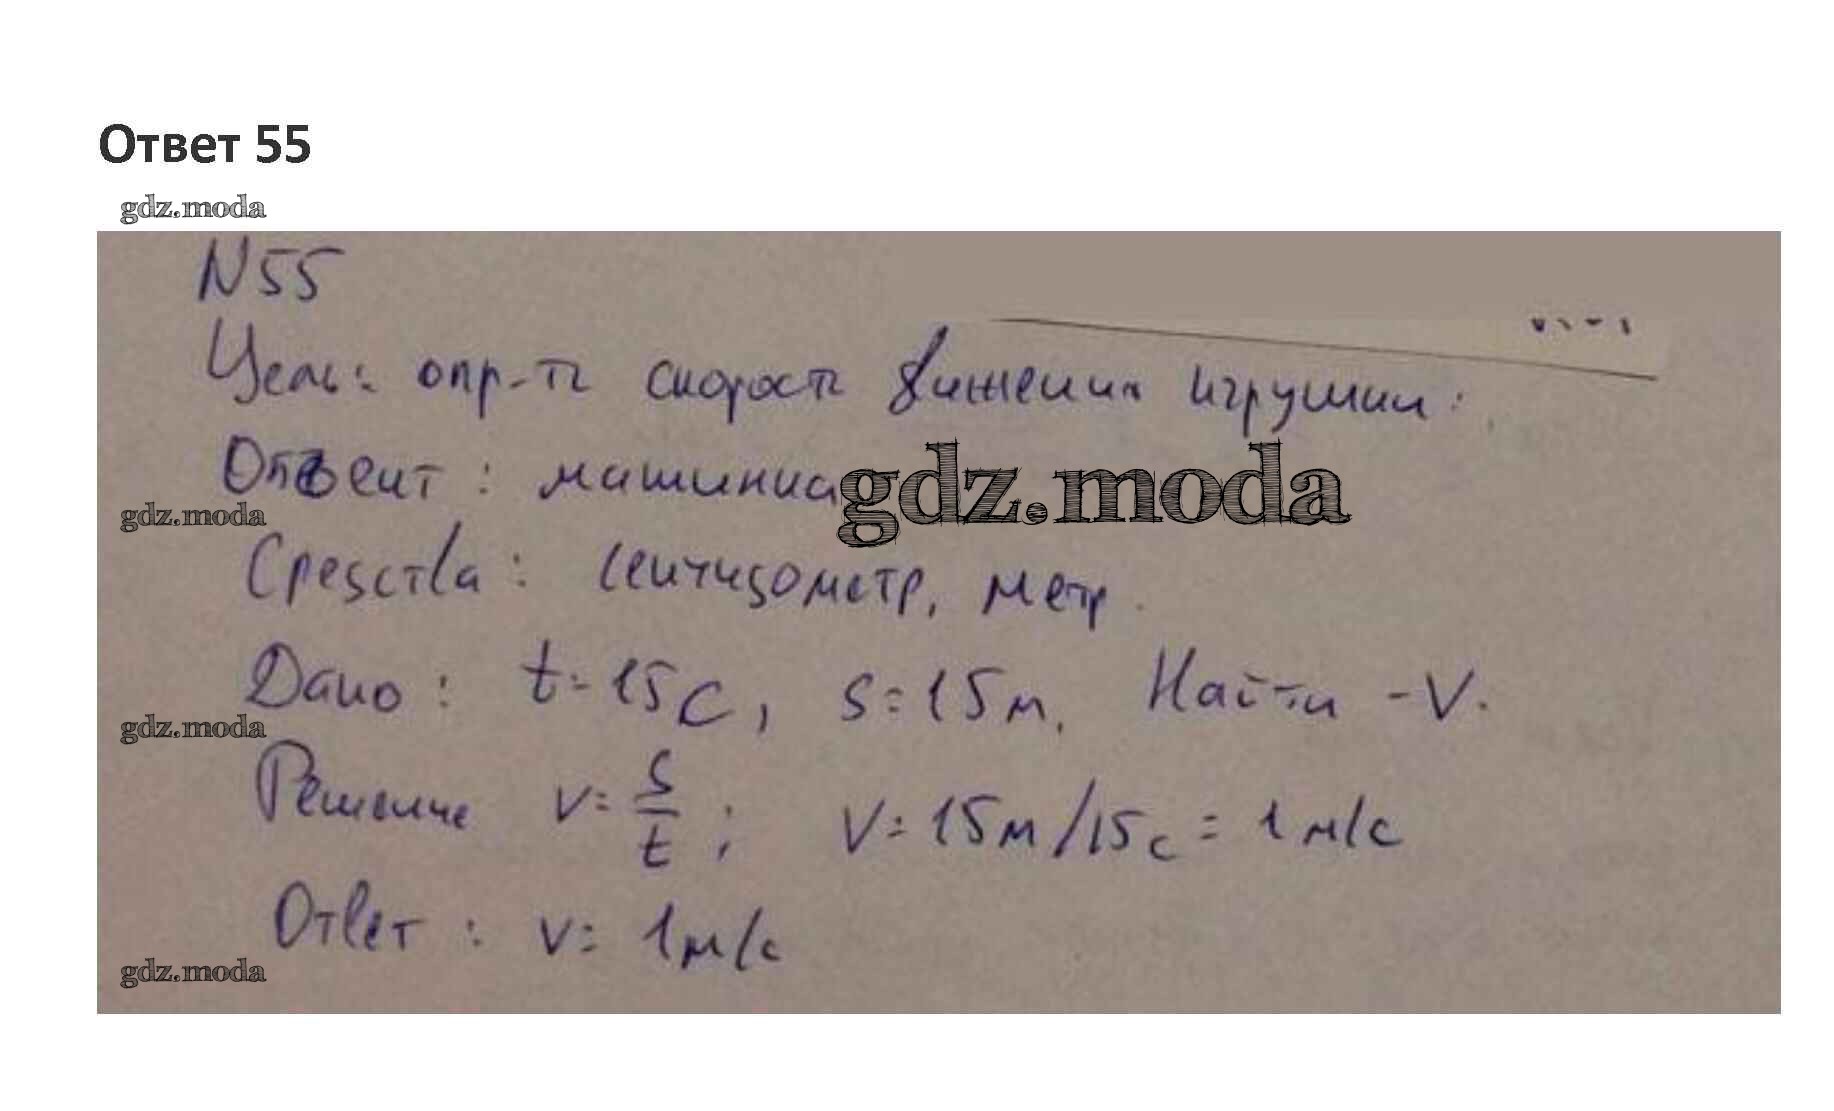 Ответ 55
gdz.moda
N55
Цель: опр-ть скорость движения игрушки:
Объект: машинка gdz.moda
gdz.moda
Средства: секундометр, метр.
Дано: t=15с, s=15м, Найти -V.
gdz.moda
Решение v=s/t; V=15м/15с=1м/с
Ответ: v=1м/с
gdz.moda